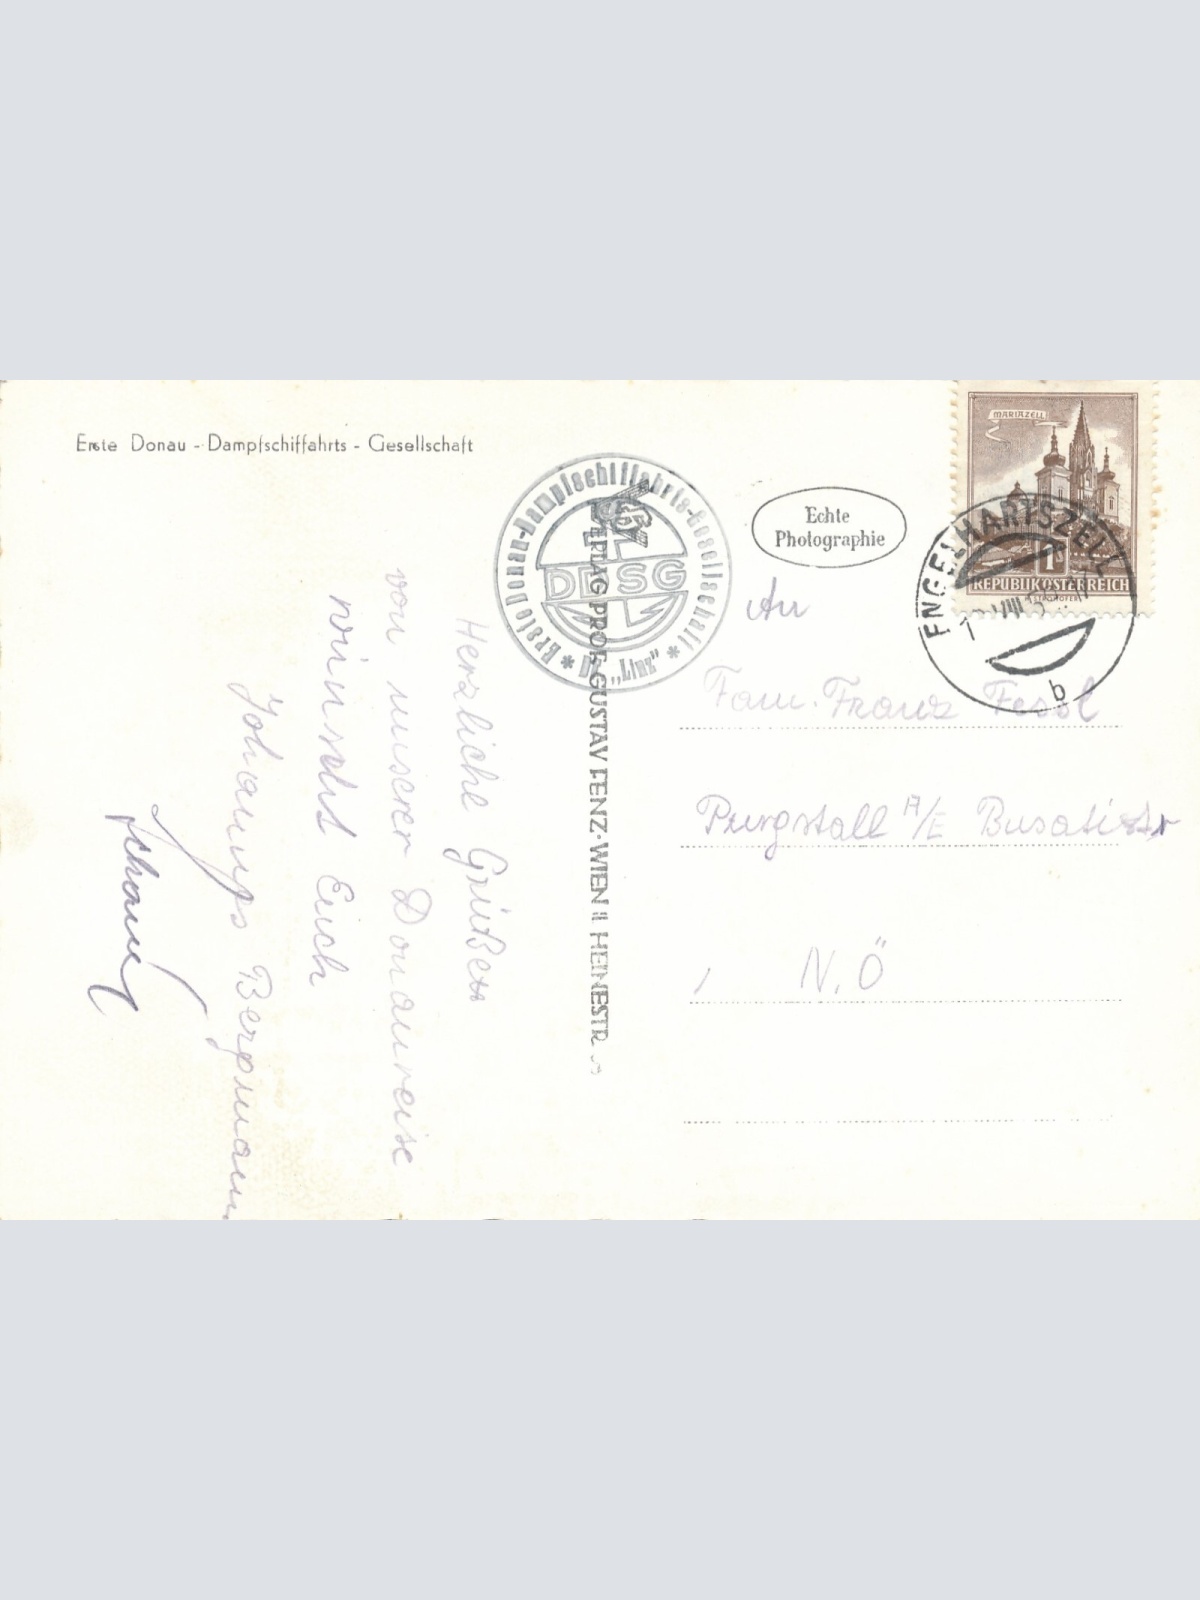 Erste Donau - Dampfschiffahrts - Gesellschaft
Erste Donau-Dampfschiffahrts-Gesellschaft
DDSG
* DS „Linz" *
Echte
Photographie
MARIAZELL
1 S
REPUBLIK ÖSTERREICH
ENGELHARTSZELL
b
VERLAG PROF. GUSTAV FENZ · WIEN II HEINESTR
An
Fam. Franz Fessl
Purgstall A/E
N.Ö
Herzliche Grüßen
von unserer Donaureise
wünscht Euch
Bergmann